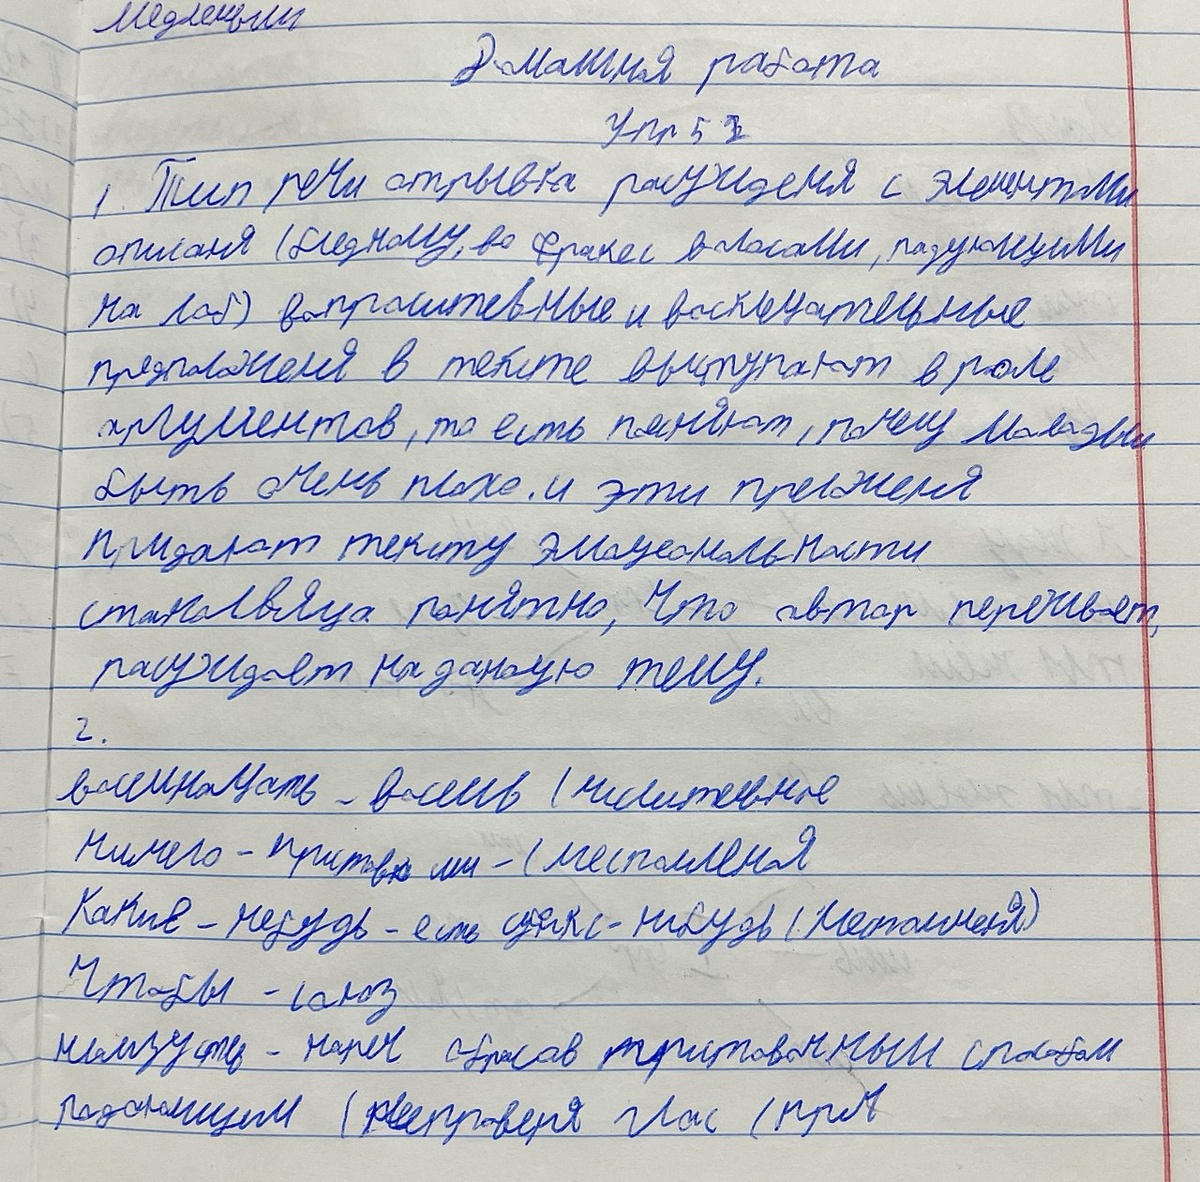 Медленный
Домашняя работа
Упр 51
1. Тип речи отрывка расуждения с элементами
описаня (бледному, во фраке с волосами, падующими
на лоб) вопросительные и восклицательные
предположеня в тексте выступают в роле
аргументов, то есть пояняют, почему молодым
быть очень плохо. и эти предложеня
придают тексту эмоцеональности
становяца понятно, что автор переживает,
расуждает на даную тему.
2.
восемнацать - восемь (числительное
ничего - приставка ни - (местоименя
Какие - небудь - есть суфикс - нибудь (местоименя)
Чтобы - союз
наизусть - нареч образов приставочным способом
падающим (непроверя глас (прич